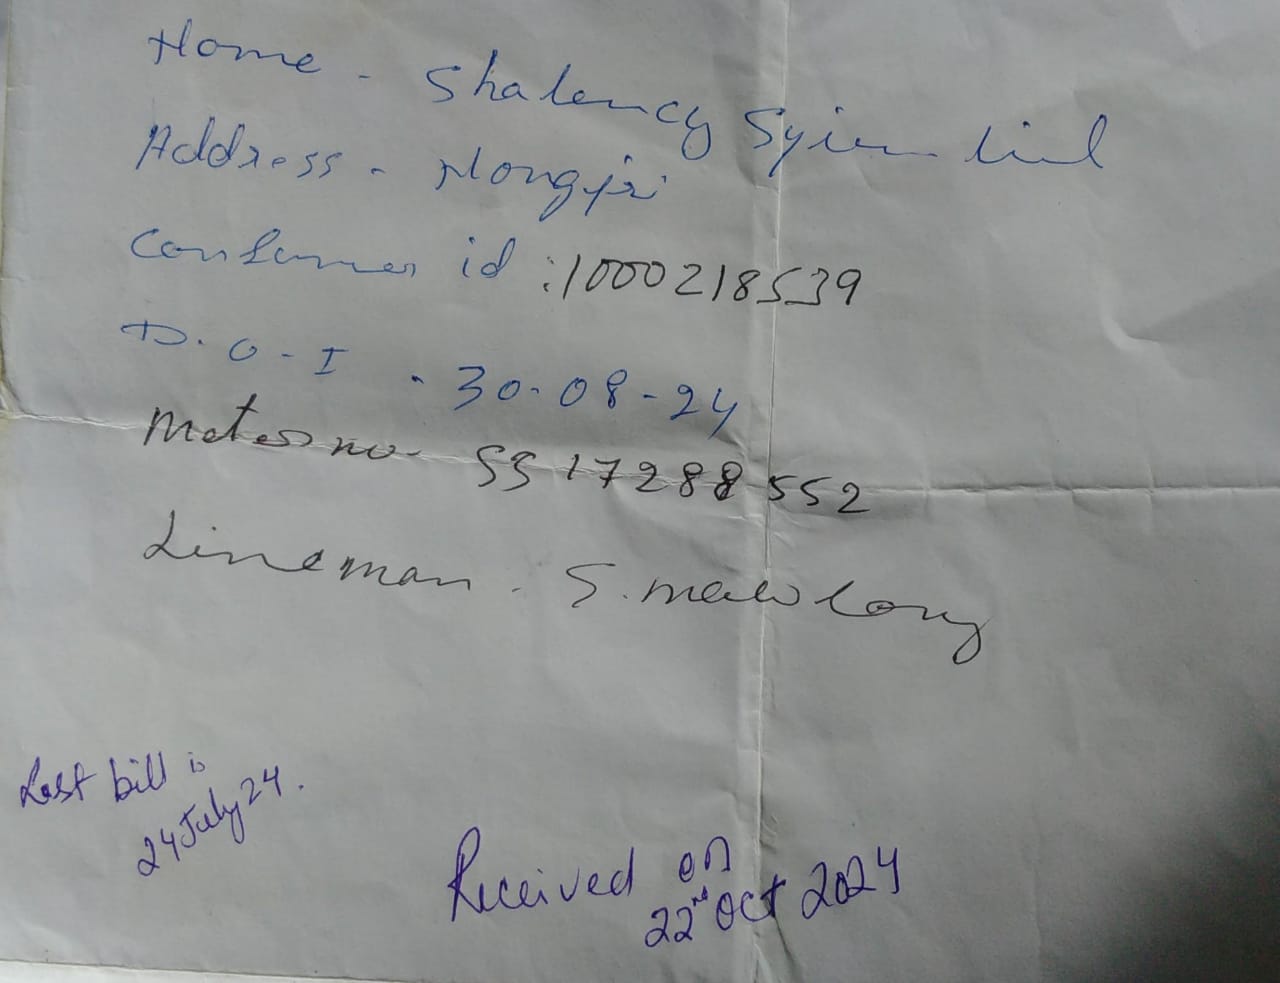 Home - Shalency Syiem lial
Address - Nongjri
Consumer id :1000218539
D.O-I . 30-08-24
Meter no- SS 17288552
Lineman . S. mawlong
Last bill is
24 July 24.
Received on
22nd Oct 2024